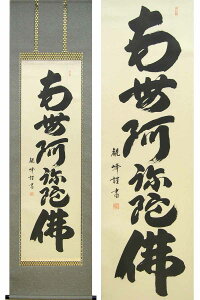 南無阿弥陀佛
龍峰謹書
南無阿弥陀佛
龍峰謹書